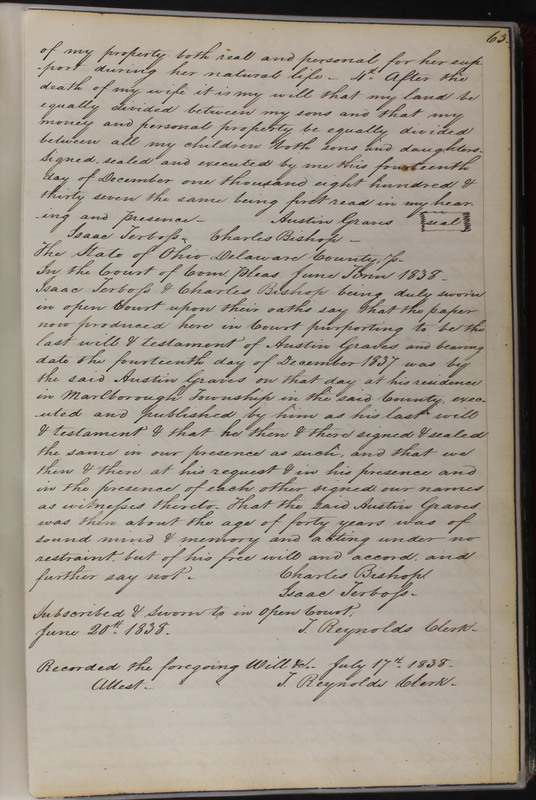 63.
of my property both real and personal for her sup-
-port during her natural life - 4th. After the
death of my wife it is my will that my land be
equally divided between my sons and that my
money and personal property be equally divided
between all my children both sons and daughters -
Signed, sealed and executed by me this fourteenth
day of December one thousand eight hundred &
thirty seven the same being first read in my hear
-ing and presence - Austin Graves seal
Isaac Terboss. Charles Bishop -
The State of Ohio Delaware County, ss.
In the Court of Com. Pleas June Term 1838 -
Isaac Terboss & Charles Bishop being duly sworn
in open Court upon their oaths say that the paper
now produced here in Court purporting to be the
last will & testament of Austin Graves and bearing
date the fourteenth day of December 1837 was by
the said Austin Graves on that day at his residence
in Marlborough Township in the said County, exec-
-uted and published by him as his last will
& testament & that he then & there signed & sealed
the same in our presence as such, and that we
then & there at his request & in his presence and
in the presence of each other signed our names
as witnesses thereto. That the said Austin Graves
was then about the age of forty years was of
sound mind & memory and acting under no
restraint, but of his free will and accord, and
further say not - Charles Bishop
Isaac Terboss -
Subscribed & Sworn to in Open Court,
June 20th. 1838. T. Reynolds Clerk -
Recorded the foregoing Will &c. July 17th. 1838 -
Attest - T. Reynolds Clerk -